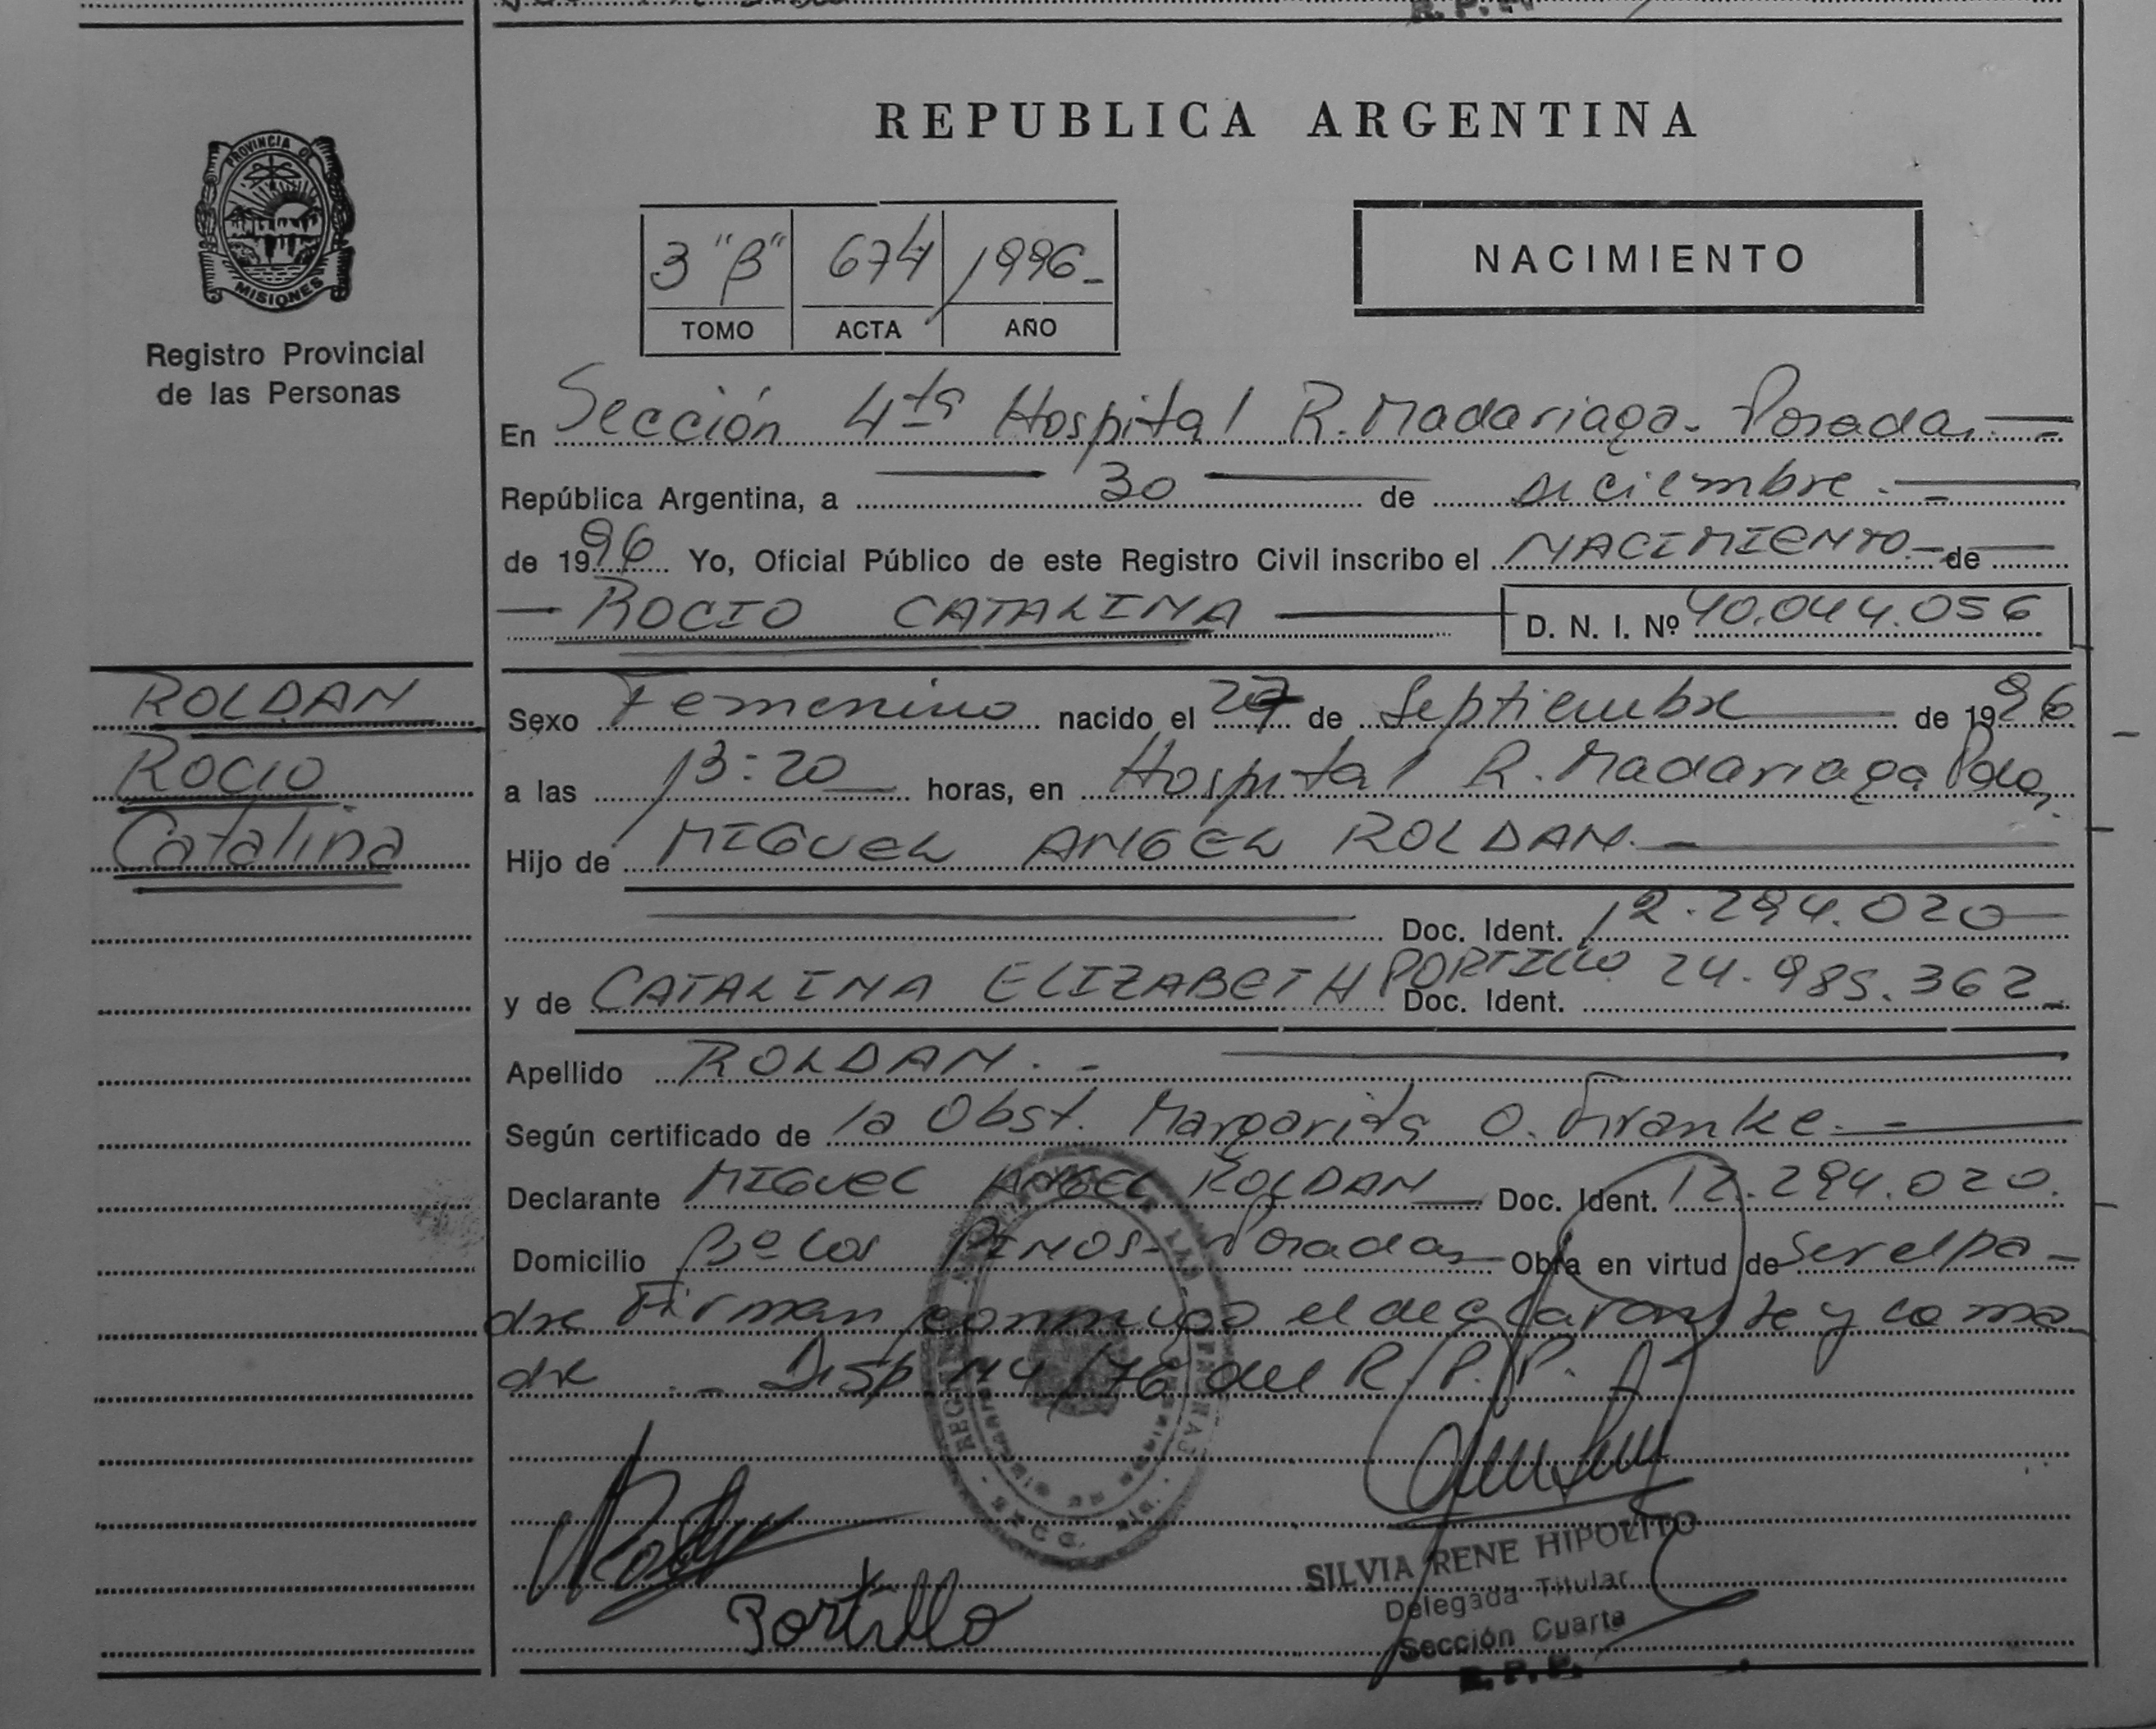 REPUBLICA ARGENTINA
PROVINCIA DE
MISIONES
Registro Provincial
de las Personas
3 "B" 674 1996-
TOMO ACTA AÑO
NACIMIENTO
En Sección 4ta Hospital R. Madariaga. Posadas.-
República Argentina, a 30 de diciembre.-
de 1996 Yo, Oficial Público de este Registro Civil inscribo el NACIMIENTO.- de
ROCIO CATALINA D. N. I. Nº 40.044.056
ROLDAN
ROCIO
Catalina
Sexo Femenino nacido el 27 de Septiembre de 1996
a las 13:20 horas, en Hospital R. Madariaga Pdas.
Hijo de MIGUEL ANGEL ROLDAN.-
Doc. Ident. 12.294.020
y de CATALINA ELIZABETH PORTILLO Doc. Ident. 24.985.362-
Apellido ROLDAN.-
Según certificado de la Obst. Margarita O. Franke.-
Declarante MIGUEL ANGEL ROLDAN Doc. Ident. 12.294.020.
Domicilio Bº Los PINOS- Posadas Obra en virtud de Ser el pa-
dre Firman conmigo el declarante y la ma
dre .- Disp. 114/76 del R.P.P.
Portillo
SILVIA RENE HIPOLITO
Delegada Titular
Sección Cuarta
R. P. P.